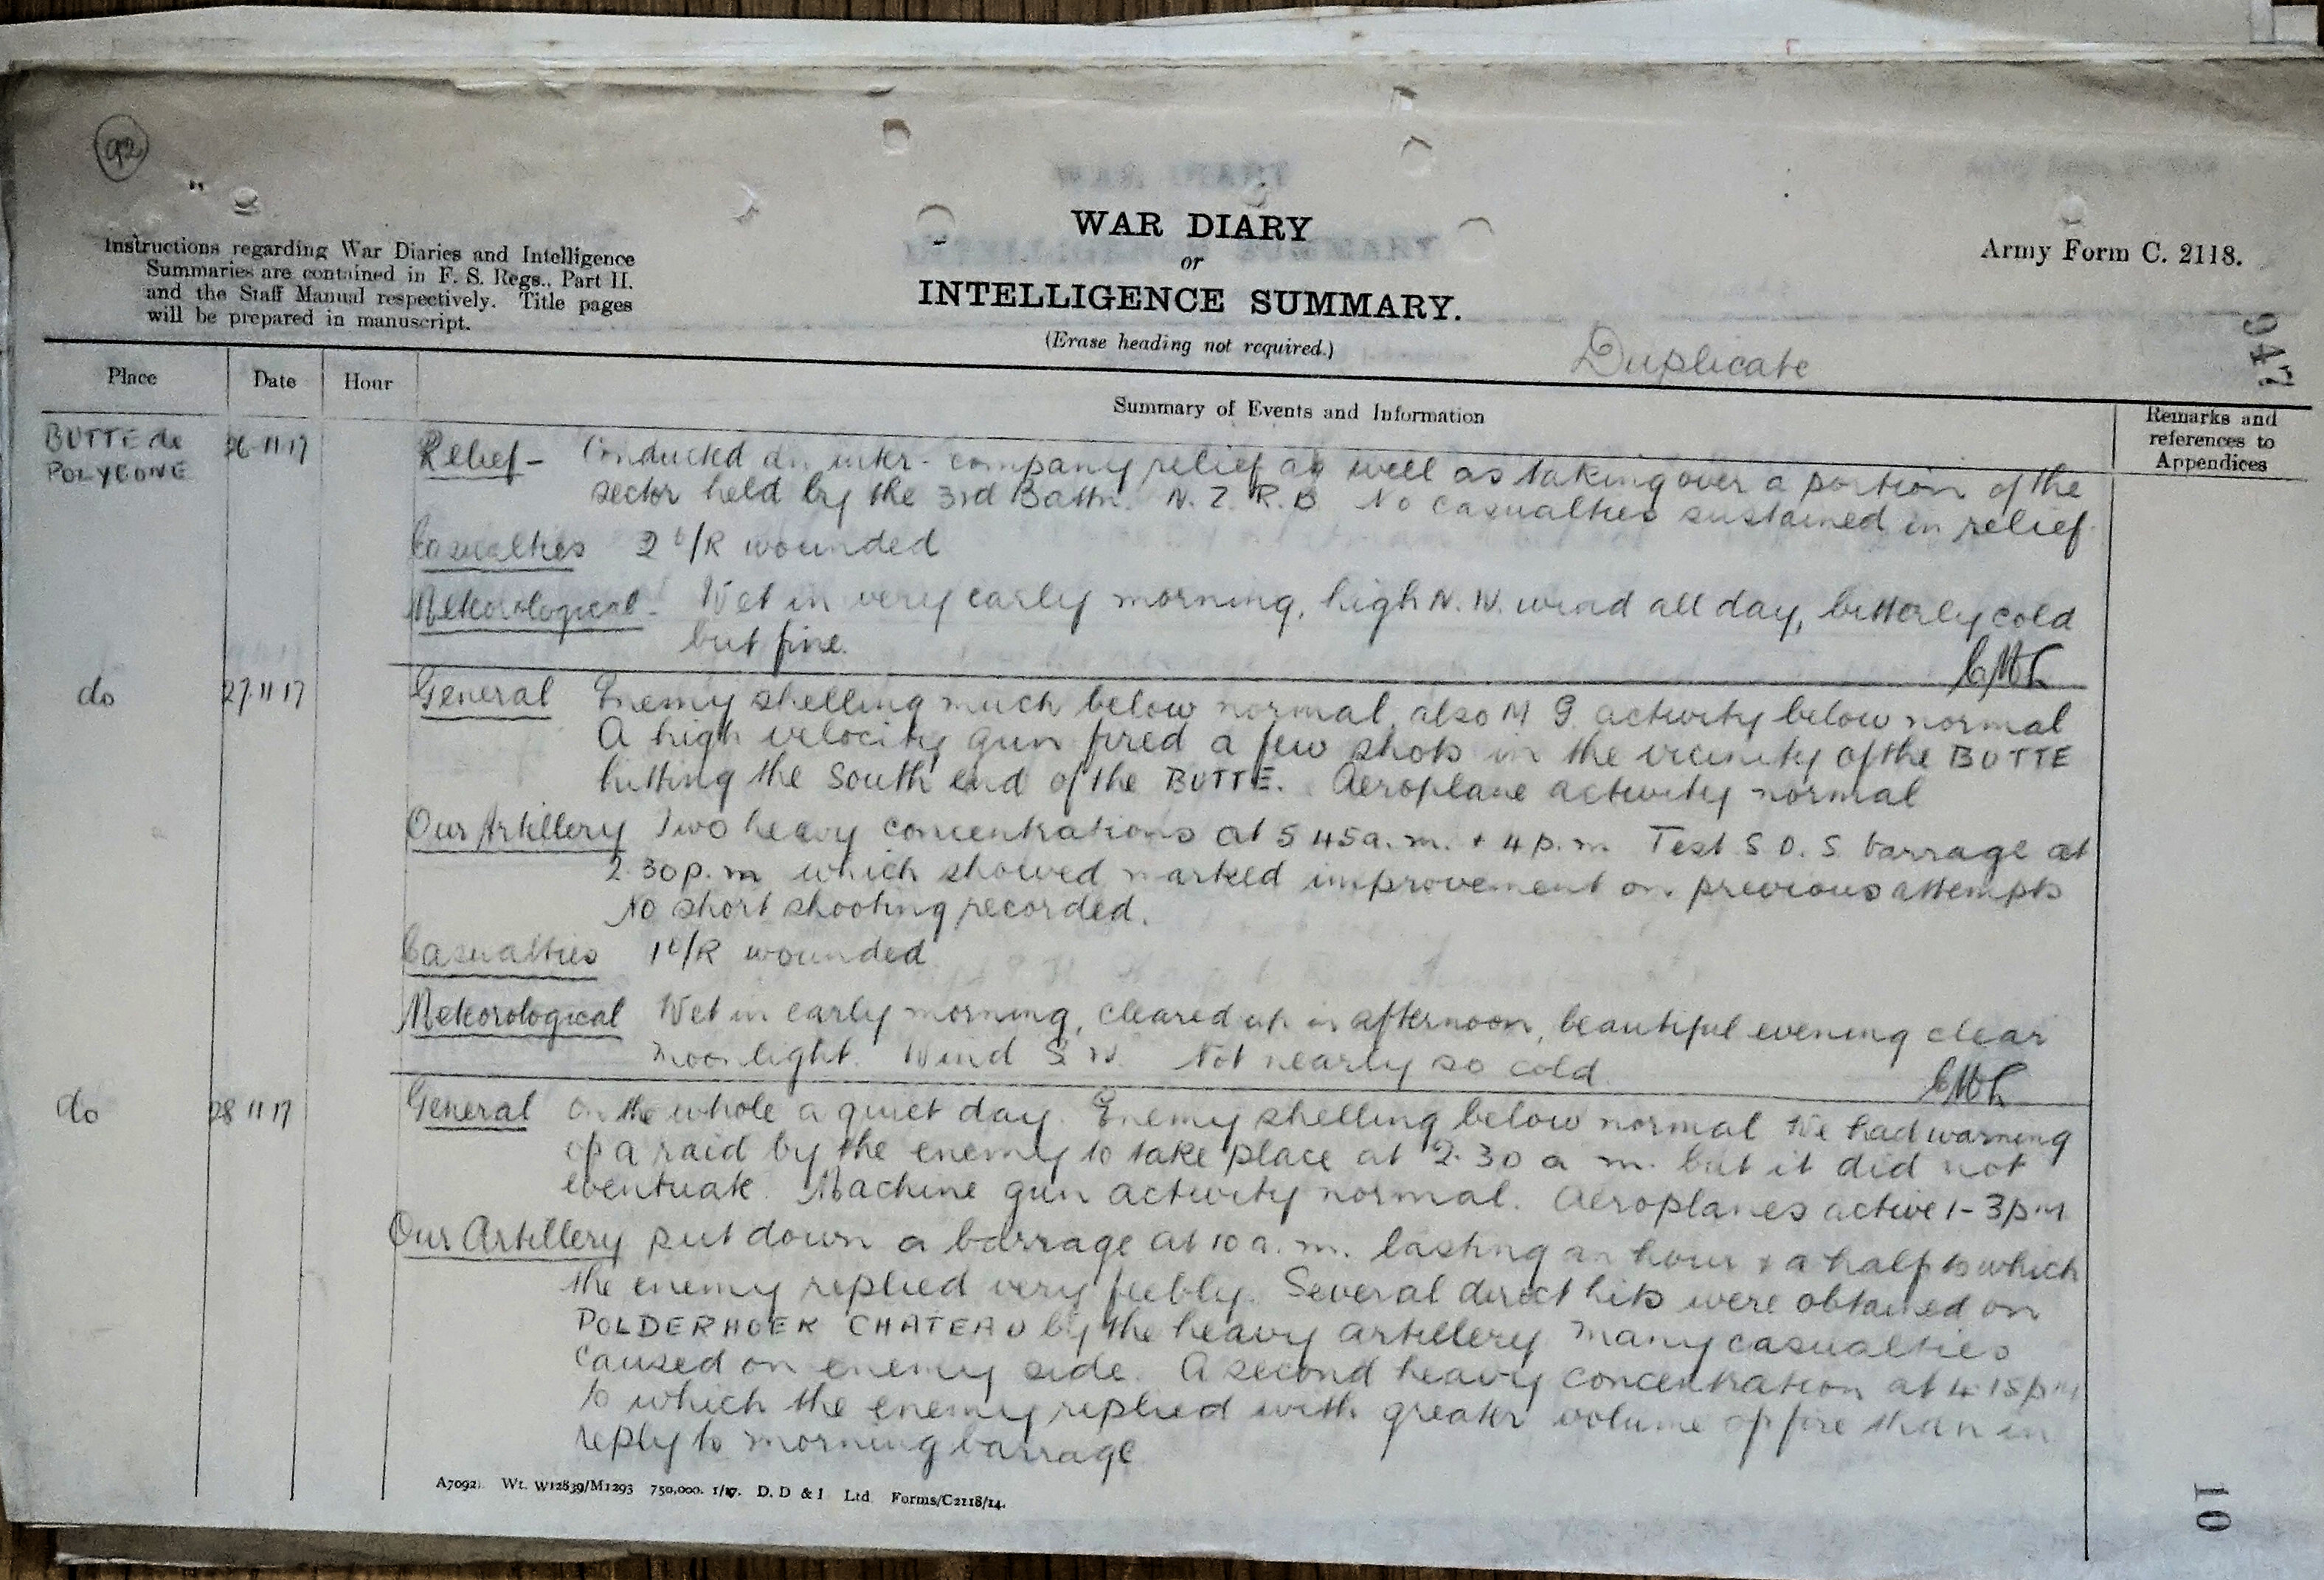 92
Instructions regarding War Diaries and Intelligence
Summaries are contained in F. S. Regs., Part II.
and the Staff Manual respectively. Title pages
will be prepared in manuscript.
WAR DIARY
or
INTELLIGENCE SUMMARY.
(Erase heading not required.)
Army Form C. 2118.
Duplicate
Place
Date
Hour
Summary of Events and Information
Remarks and
references to
Appendices
BUTTE de
POLYGONE
26-11-17
Relief - Conducted an inter-company relief as well as taking over a portion of the
sector held by the 3rd Battn. N. Z. R. B. No casualties sustained in relief.
Casualties 2 O/R wounded
Meteorological - Wet in very early morning, high N. W. wind all day, bitterly cold
but fine.
do
27.11.17
General Enemy shelling much below normal, also M G. activity below normal
A high velocity gun fired a few shots in the vicinity of the BUTTE
hitting the South end of the BUTTE. Aeroplane activity normal
Our Artillery Two heavy concentrations at 5 45a.m. + 4 p.m. Test S O. S. barrage at
2.30p.m which showed marked improvement on previous attempts
No short shooting recorded.
Casualties 1 O/R wounded
Meteorological Wet in early morning, cleared up in afternoon, beautiful evening clear
moonlight. Wind S W. Not nearly so cold.
do
28 11 17
General On the whole a quiet day. Enemy shelling below normal We had warning
of a raid by the enemy to take place at 2.30 a m. but it did not
eventuate. Machine gun activity normal. Aeroplanes active 1-3pm
Our Artillery put down a barrage at 10 a.m. lasting an hour + a half to which
the enemy replied very feebly. Several direct hits were obtained on
POLDERHOEK CHATEAU by the heavy artillery many casualties
caused on enemy side. A second heavy concentration at 4.15pm
to which the enemy replied with greater volume of fire than in
reply to morning barrage
A7092. Wt. W12839/M1293 750,000. 1/17. D. D & I Ltd Forms/C2118/14.
10